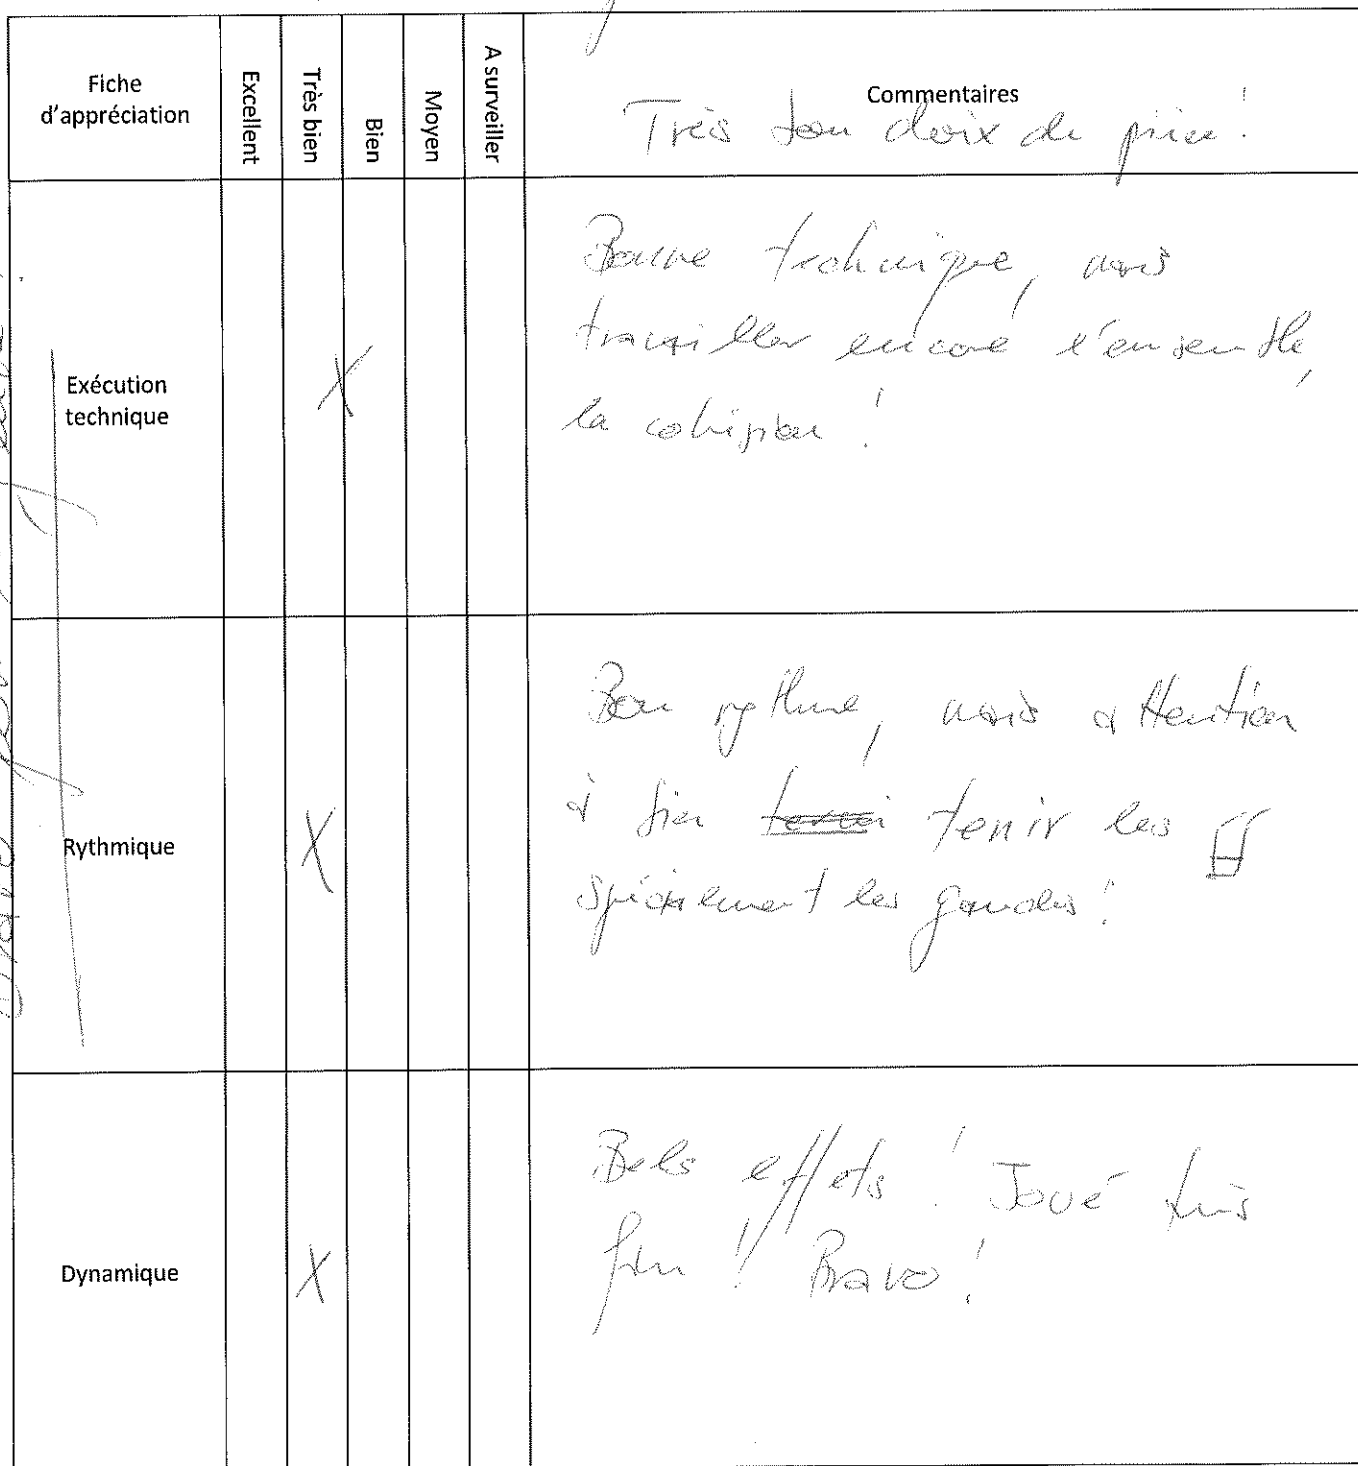 Fiche
d'appréciation
Excellent
Très bien
Bien
Moyen
A surveiller
Commentaires
Très bon choix de pièce !
Exécution
technique
X
Bonne technique, mais
travailler encore l'ensemble,
la cohésion !
Rythmique
X
Bon rythme, mais attention
à bien tenir les
spécialement les gauches !
Dynamique
X
Bels effets ! Joué très
fin ! Bravo !